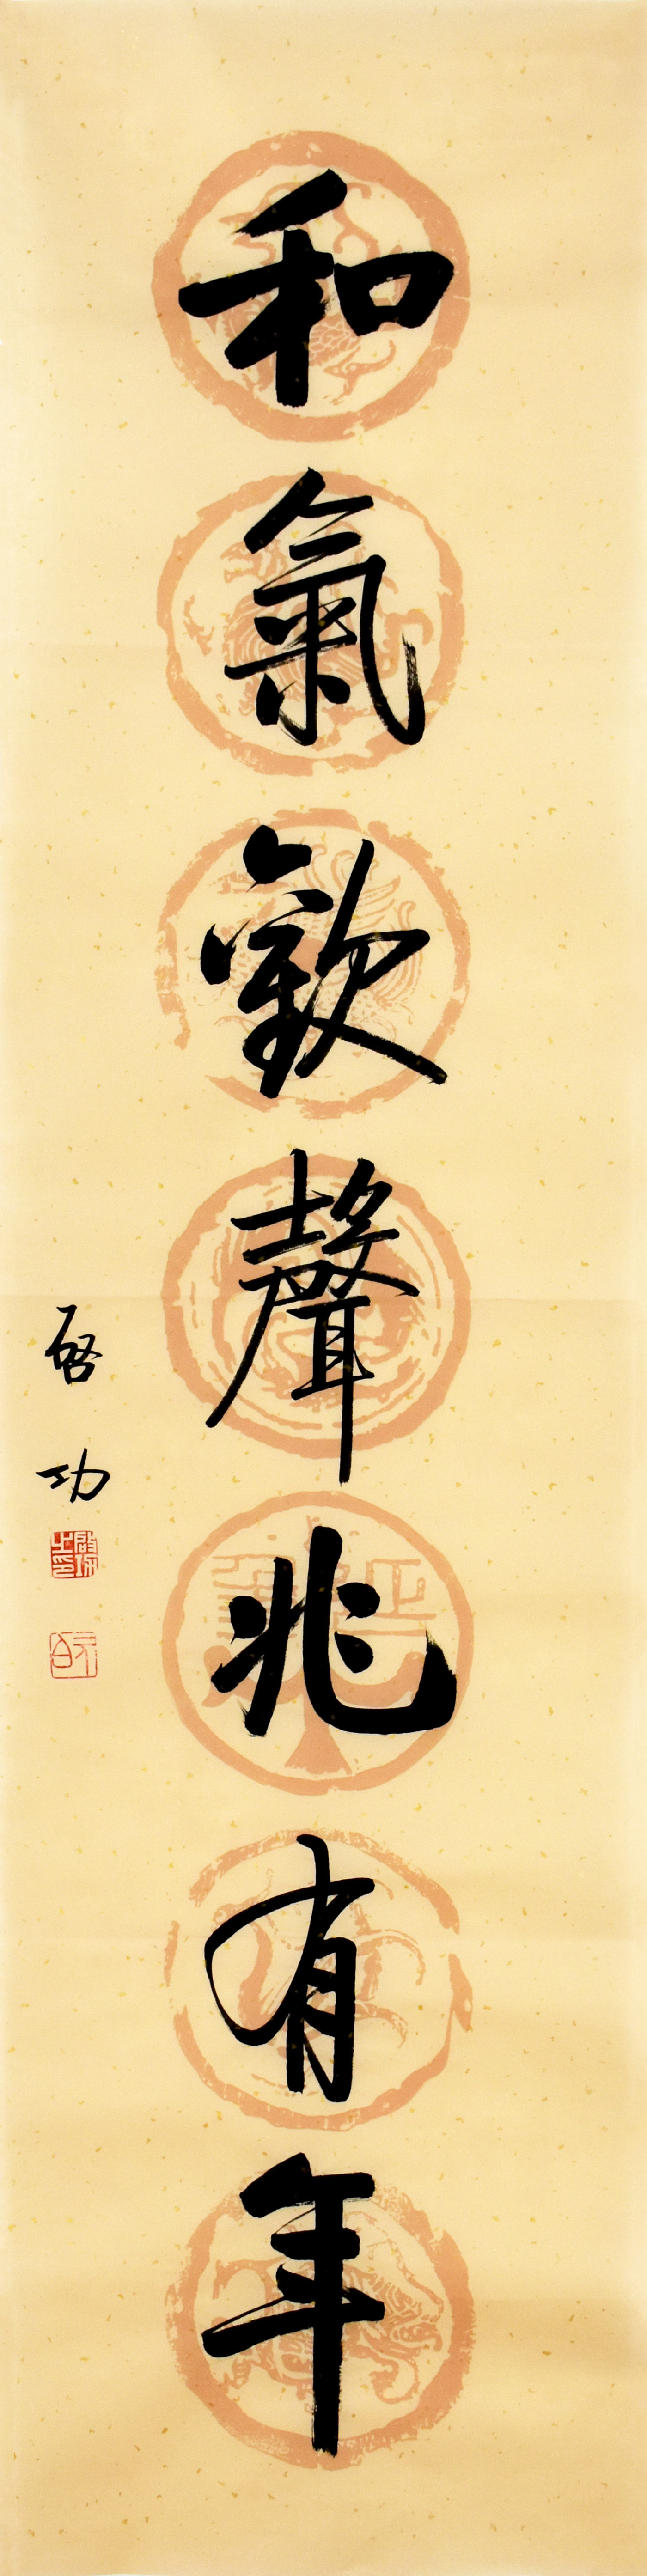 和氣歡聲兆有年
启功